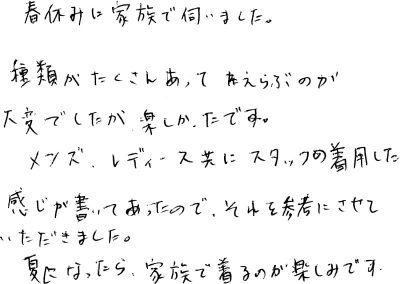 春休みに家族で伺いました。
種類がたくさんあって えらぶのが
大変でしたが、楽しかったです。
メンズ、レディース共に スタッフの着用した
感じが書いてあったので、それを参考にさせて
いただきました。
夏になったら、家族で着るのが楽しみです。